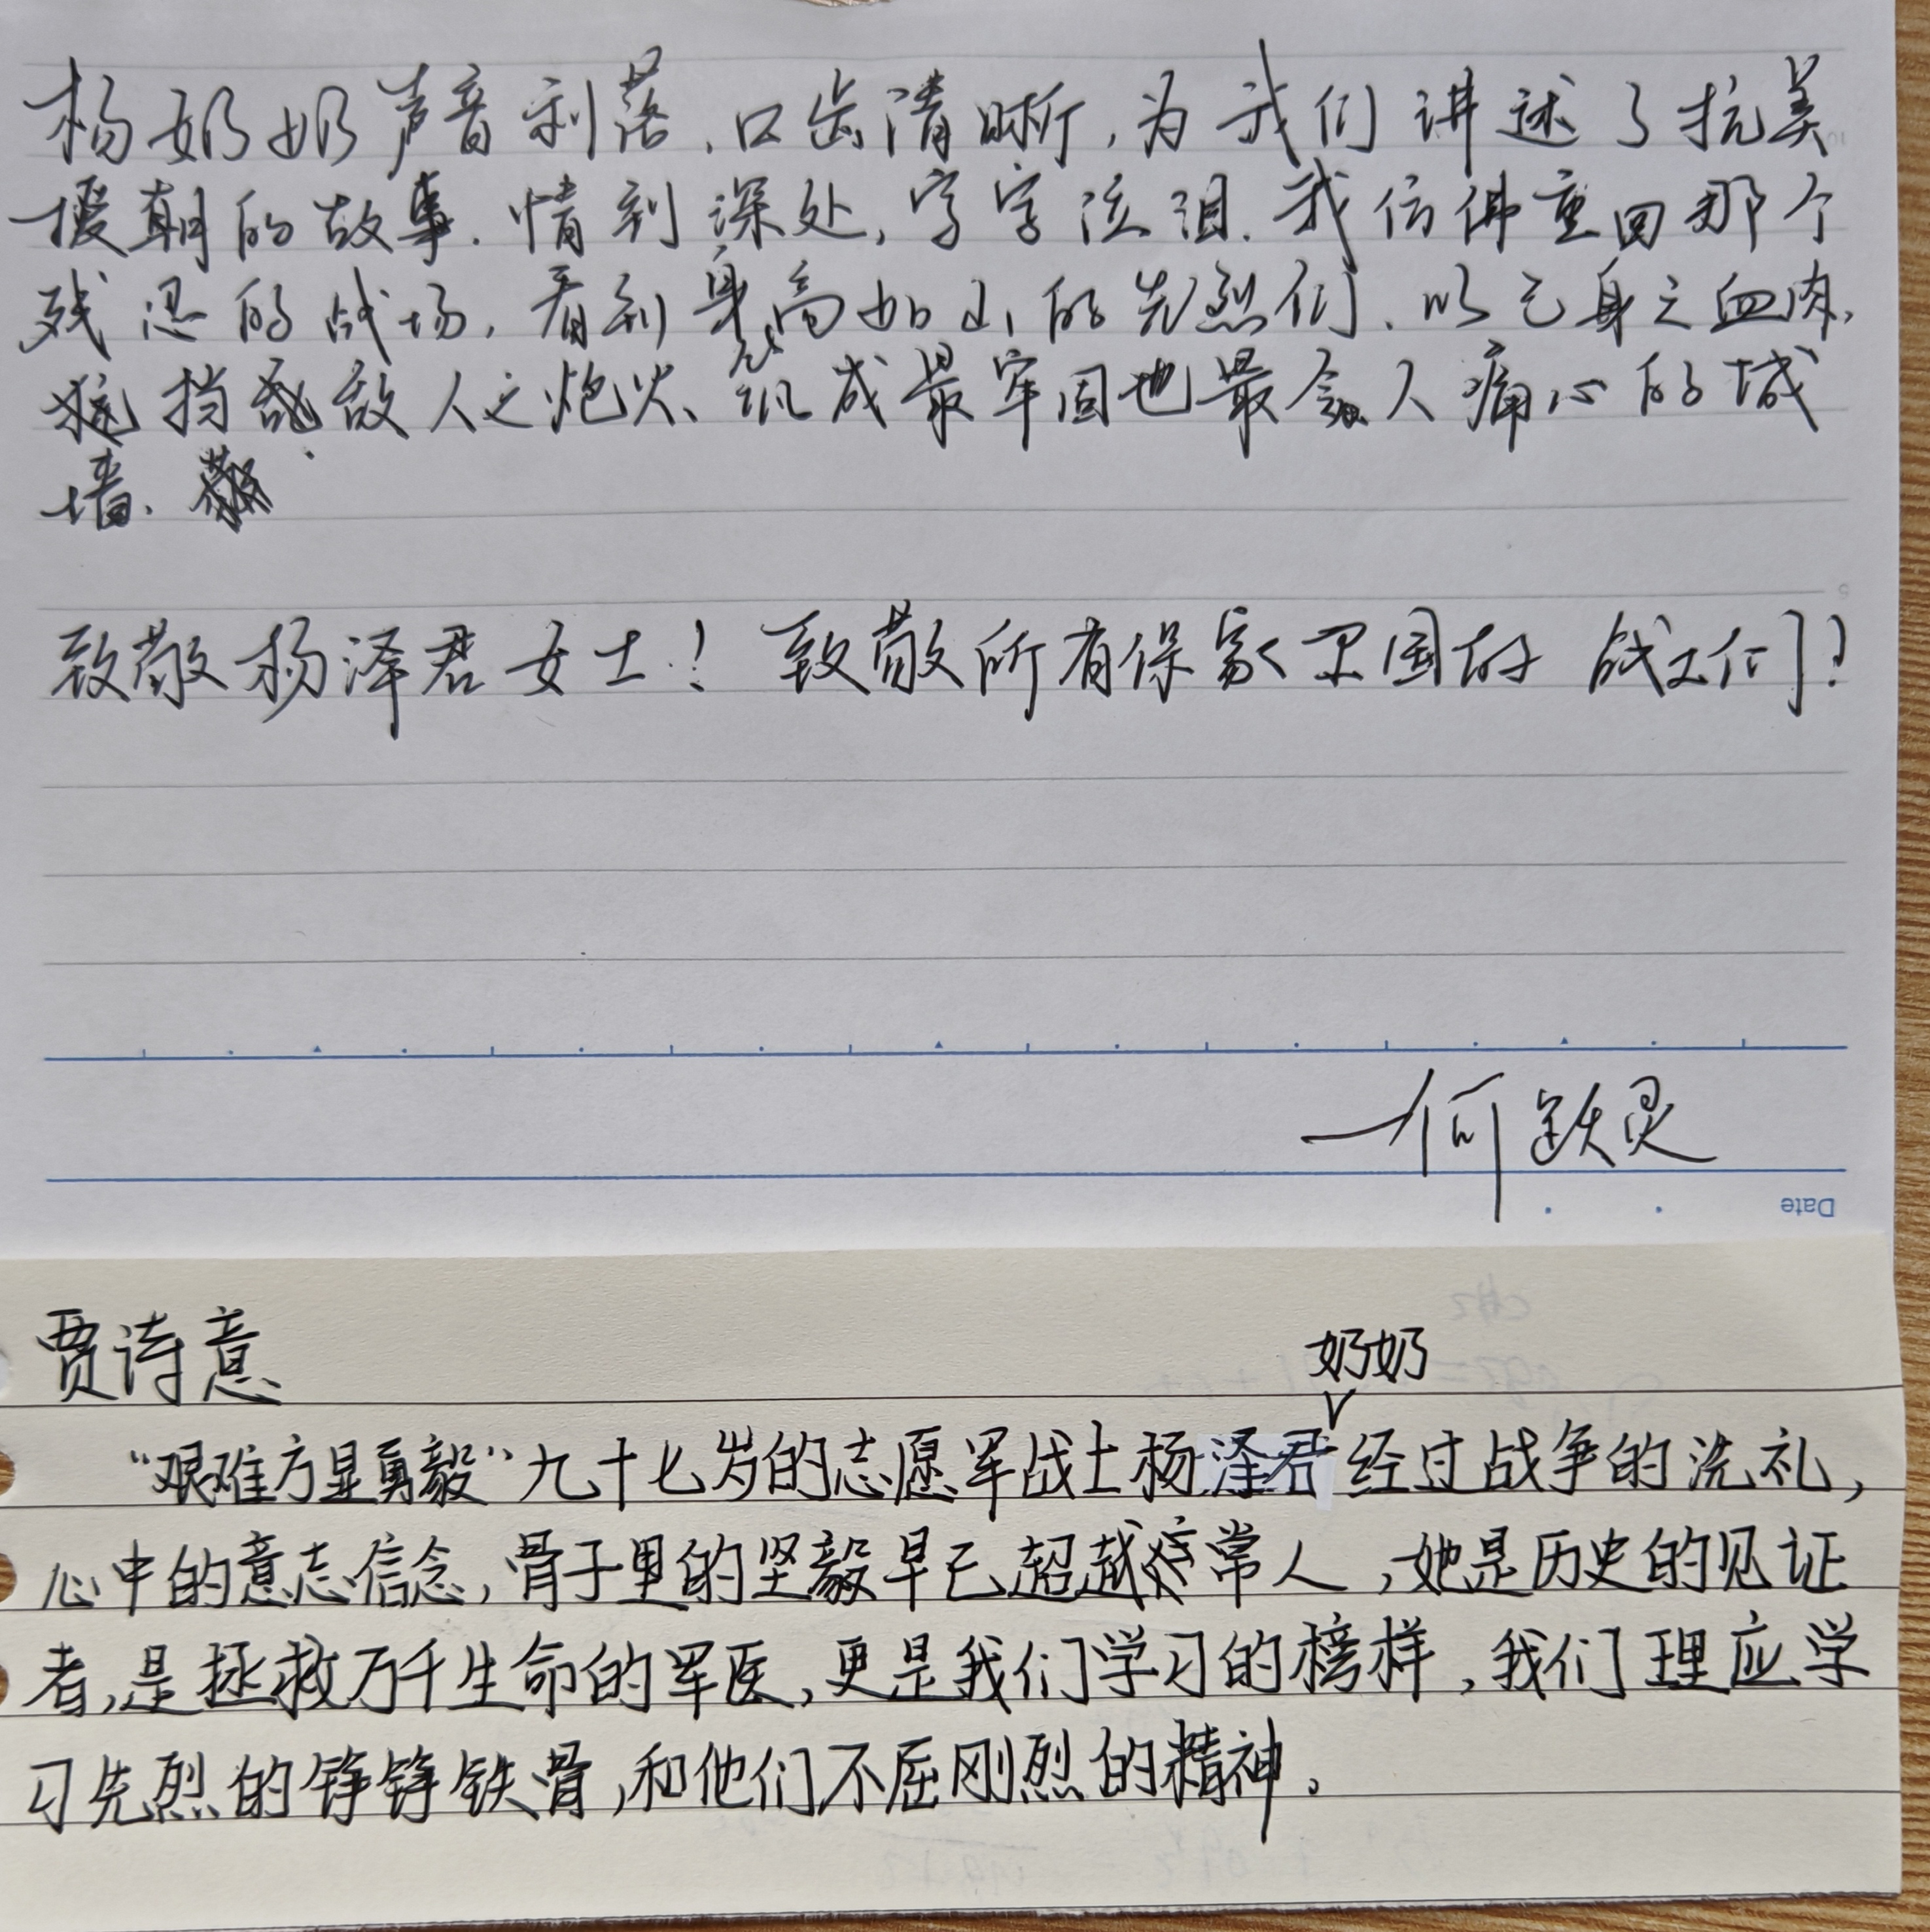 杨奶奶声音利落,口齿清晰,为我们讲述了抗美
援朝的故事.情到深处,字字泣泪.我仿佛重回那个
残忍的战场,看到身高如山的先烈们、以己身之血肉,
挡敌人之炮火、筑成最牢固也最令人痛心的城
墙.
致敬杨泽君女士!致敬所有保家卫国的战士们!
—何跃灵
Date
贾诗意
奶奶
“艰难方显勇毅”九十七岁的志愿军战士杨泽君经过战争的洗礼,
心中的意志信念,骨子里的坚毅早已超越常人,她是历史的见证
者,是拯救万千生命的军医,更是我们学习的榜样,我们理应学
习先烈的铮铮铁骨,和他们不屈刚烈的精神。